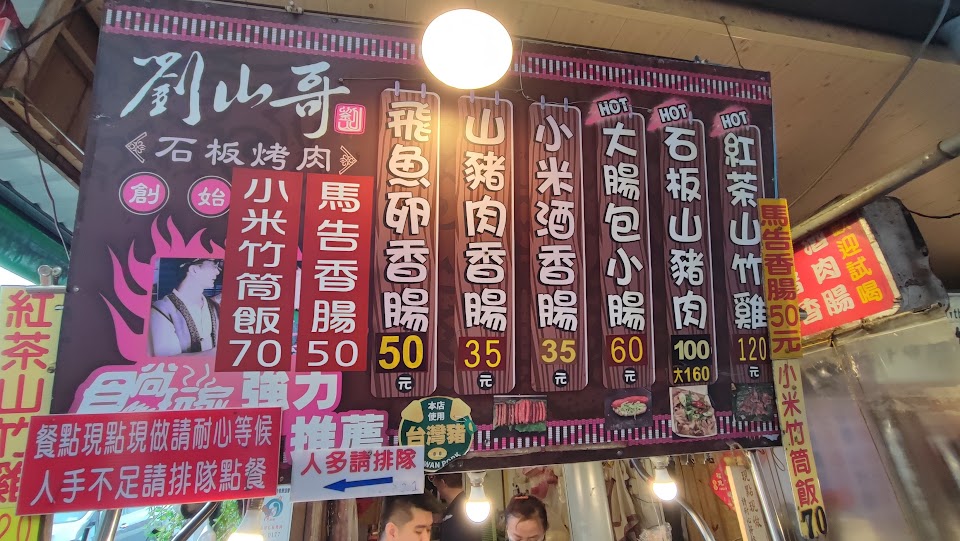 劉山哥
劉
石板烤肉
創 始
小米竹筒飯 70
馬告香腸 50
飛魚卵香腸
50元
山豬肉香腸
35元
小米酒香腸
35元
HOT
大腸包小腸
60元
HOT
石板山豬肉
100元
大160
HOT
紅茶山竹雞
120元
強力
推薦
本店
使用
台灣豬
餐點現點現做請耐心等候
人手不足請排隊點餐
人多請排隊
紅茶山竹雞
馬告香腸50元
小米竹筒飯70
迎試喝
肉腸
香